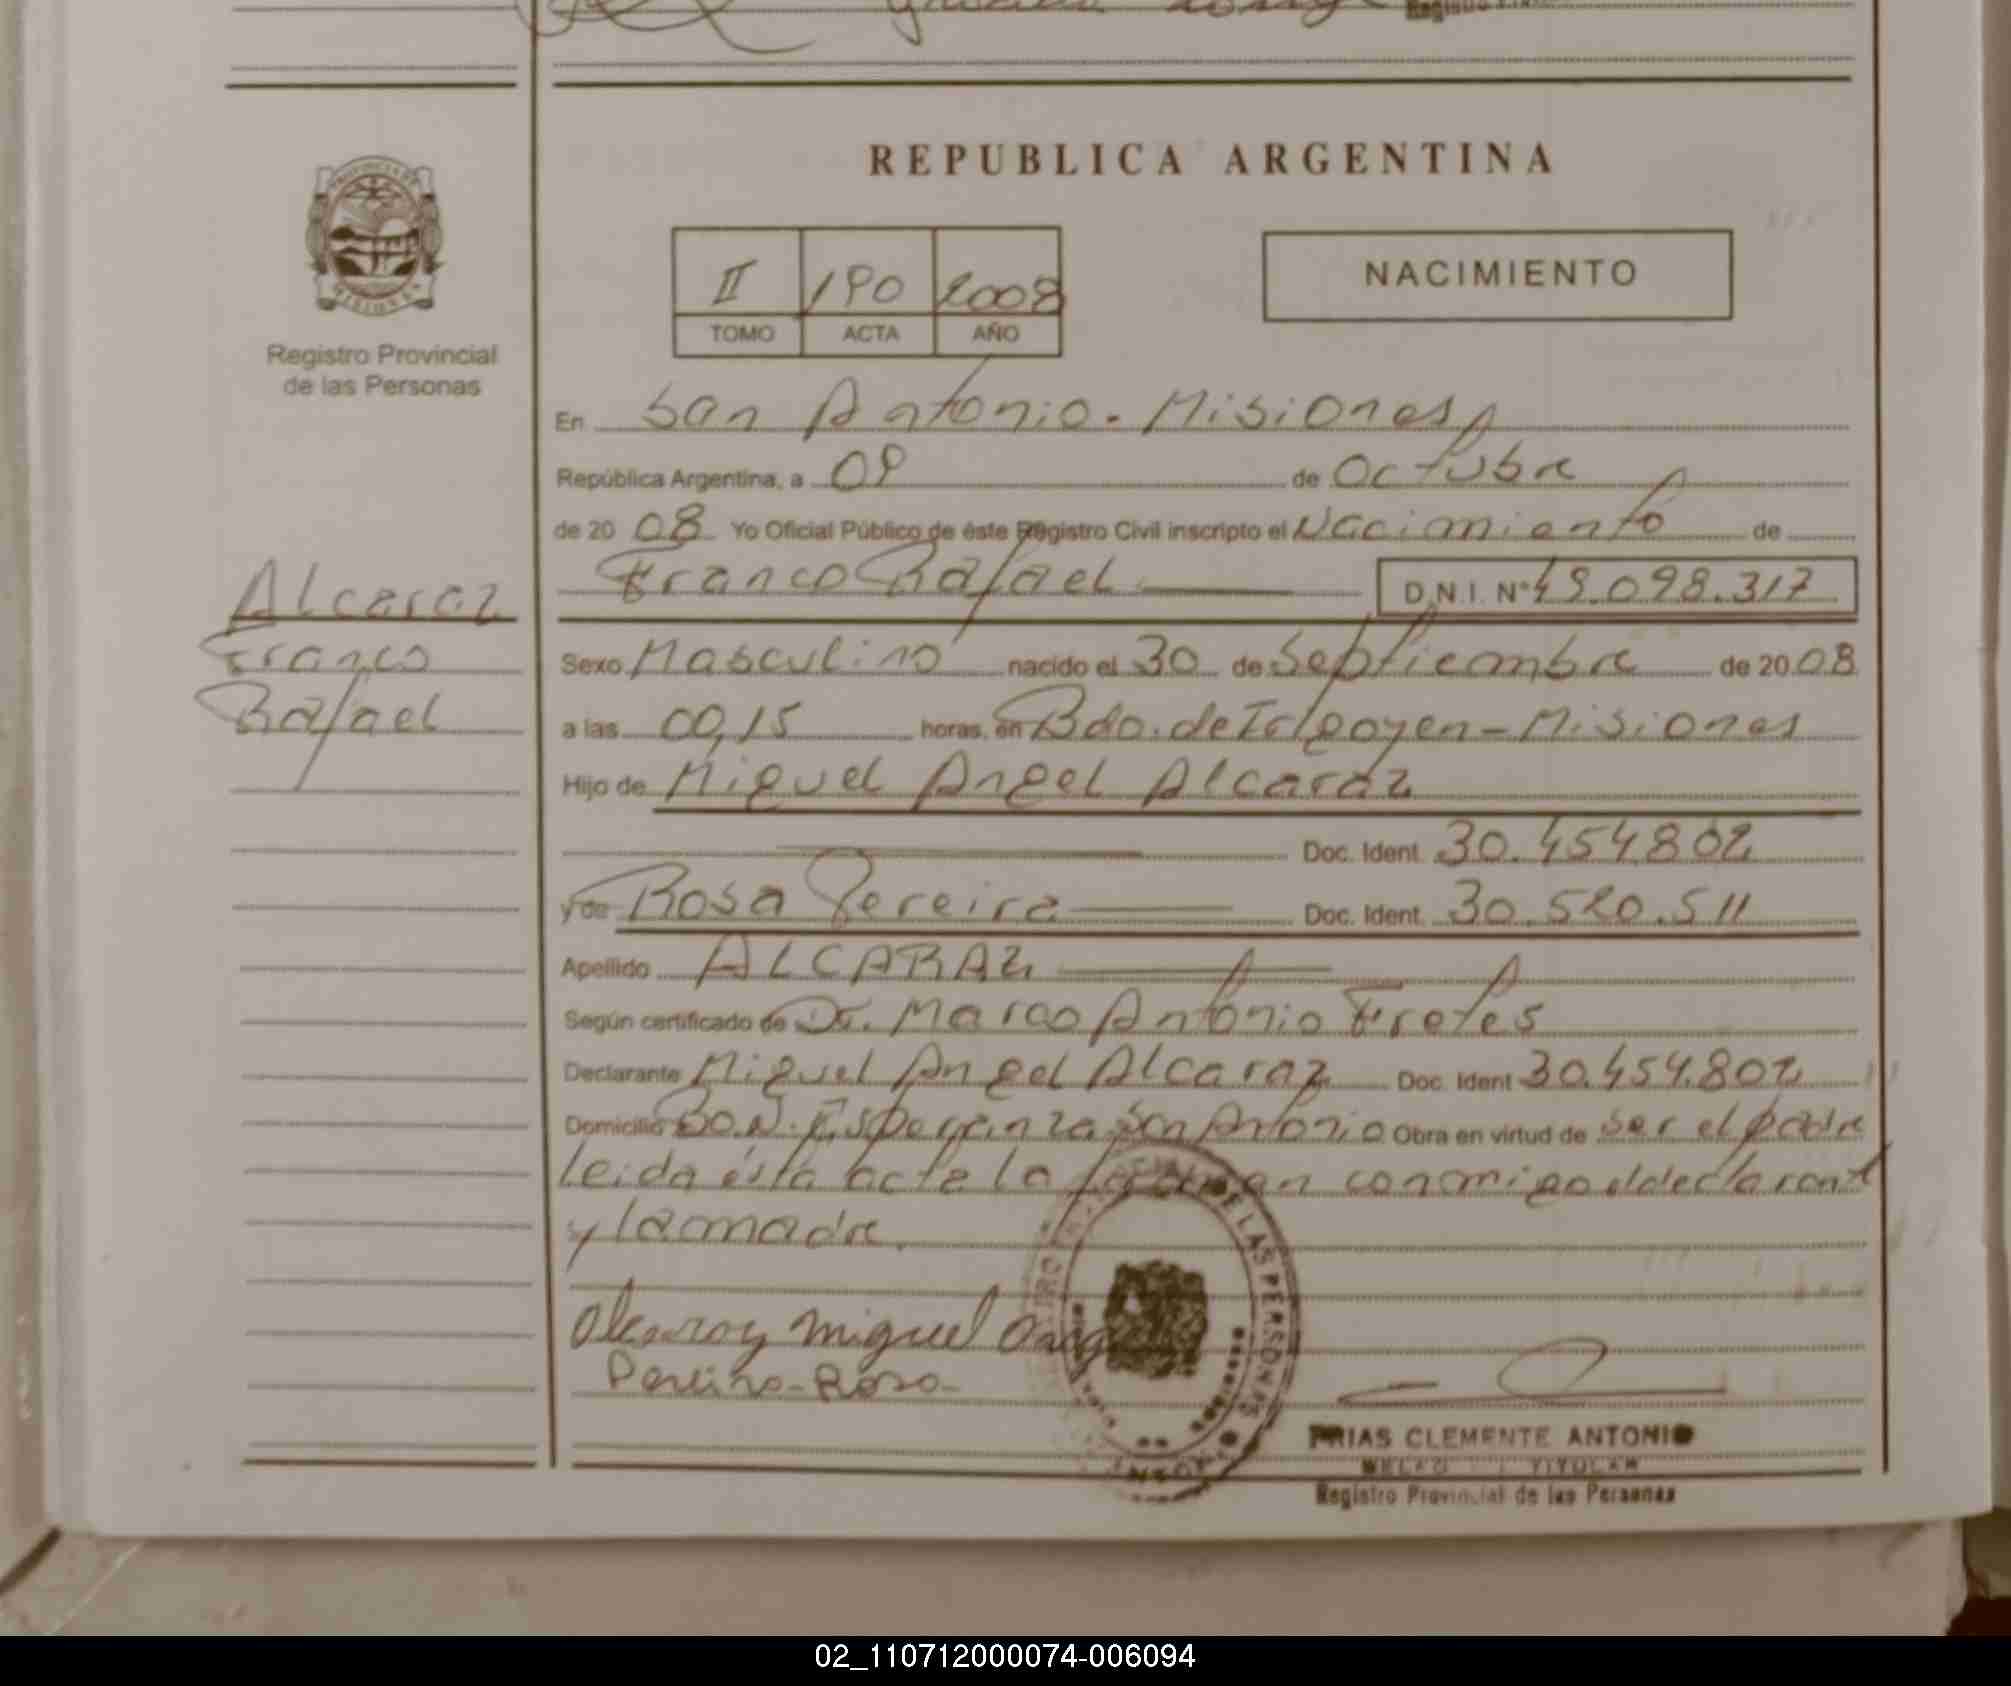 REPUBLICA ARGENTINA
II 190 2008
TOMO ACTA AÑO
NACIMIENTO
Registro Provincial
de las Personas
En San Antonio - Misiones
República Argentina, a 09 de Octubre
de 20 08 Yo Oficial Público de éste Registro Civil inscripto el Nacimiento de
Franco Rafael D.N.I. Nº 49.098.317
Alcaraz
Franco
Rafael
Sexo Masculino nacido el 30 de Septiembre de 20 08
a las 00,15 horas, en Bdo. de Irigoyen - Misiones
Hijo de Miguel Angel Alcaraz
Doc. Ident. 30.454.802
y de Rosa Pereira Doc. Ident. 30.520.511
Apellido ALCARAZ
Según certificado de Dr. Marco Antonio Fretes
Declarante Miguel Angel Alcaraz Doc. Ident 30.454.802
Domicilio Bo. N. Esperanza San Antonio Obra en virtud de ser el padre
leida ésta acta la firman conmigo el declarante
y la madre.
Alcaraz Miguel Ang
Pereira - Rosa -
DE LAS PERSONAS
FRIAS CLEMENTE ANTONIO
TITULAR
Registro Provincial de las Personas
02_110712000074-006094